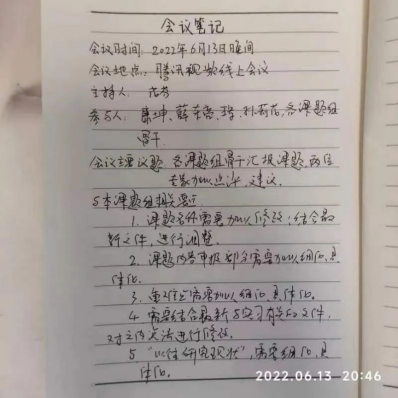 会议笔记
会议时间：2022年6月13日晚间
会议地点：腾讯视频线上会议
主持人：
参与人：康坤，薛东亮，孙莉花，各课题组
骨干.
会议主要议题 各课题组骨干汇报课题，两位
加以点评、建议.
5本课题组相关要点
1. 课题名称需要加以修改；结合最
新文件，进行调整.
2. 课题内容申报部分需要加以细化，具
体化.
3. 重难点需要加以细化、具体化。
4 需要结合最新与实习有关的文件
对方法进行修改.
5 "以往研究现状"，需要细化，具
体化.
2022.06.13 20:46